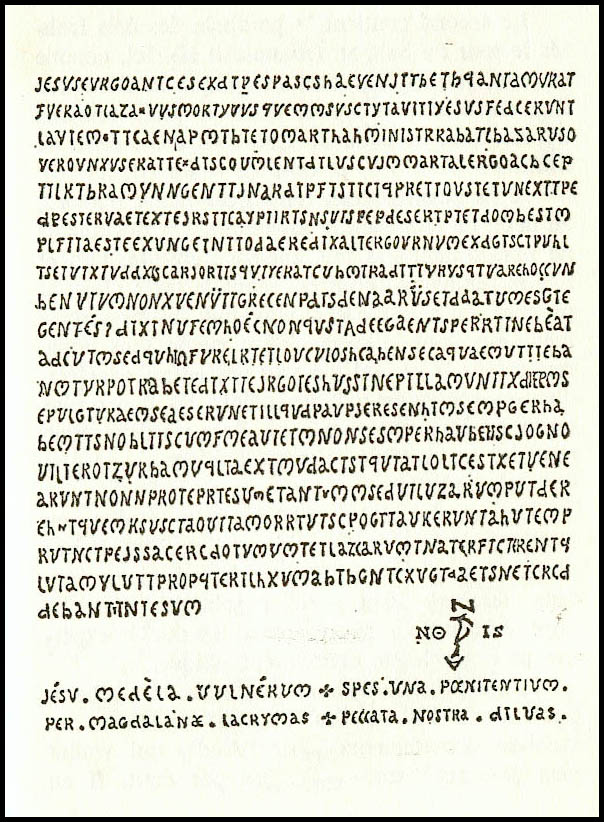 JESVSEVRGOANTCESEXDTPESPASCSHAEVENJTTBETHQANTAMVRAT
FVERAOTIAZA=VVSMORTYVVSQVEMMSVSCTYTAVITIYESVSFEDCERVNT
LAVIEM=TTCAENAPMTHTETOMARTHAHMINISTRRABATLBASARUSO
VEROVNXVSERATTE=DTSCOUMLENTDTLUSCVJMMARTALERGOACHCEP
TTLKTBRAMYNNGENTTJNARDTPFTSTTCTQPRETTOVSTETVNEXTTPE
DPESTERVAETEXTEJRSTTCAYPTIRTSNSUTSPEPDESERTPTETDOMBESTM
PLFITAESTEEXUNGETNTTODAEREDIXALTERGOVRNUMEXDGTSCTPUHL
TSETUTXIUDDXSCARJORTISQVIYERATCUHMTRADITTVRVSQTVAREHOCCVN
HENVIVMNONXVENVTTGRECENPDTSDENAARVSETDAATUMESGTE
GENTÉS? DTXTNUFEMHOÉCNONQVSTADEEGAENTSPERRTINEBEAT
ADCUTMSEDQVHMFVRELRTETLOUCVLOSHCABENSECAQVAEMUTTTEBA
NMTVRPOTRABETEDTXTTEJRGOTESHUSSTNEPTLLAMVNTTXDIEPMS
EPULGTVRAEMSEAESERVNETILLQVDPAVPJERESENHTMSEMPGERHA
BEMTTSNOBLTTSCVMFMEAVTETMNONSESMPERHAVBENSCJOGNO
VILIEROTZVRBAMVQLTAEXTMVDACTSTQVTATLOLTCESTXETVENE
ARVNTNONNPROTEPRTESUMETANTVMMSEDUTLUZARVMPVTDER
EH=TQVEMKSUSCTAOVTTAMORRTUTSCPOGTTAVKERVNTAHVTEMP
RVTNCTPEJSSACERCDOTVMVMTETLAZCARVMTNATERFTCTRRENTQ
LVTAMYLVTTPROPQTERTLHXVMABTBGNTCXVGTDAETSNETCRCD
DEBANTTNTESUM
NO IS
JÉSV . MEDÈLA . VULNÉRUM ✠ SPES . VNA . PŒNITENTIVM .
PER . MAGDALANÆ . LACRYMAS ✠ PECCATA . NOSTRA . DILVAS .